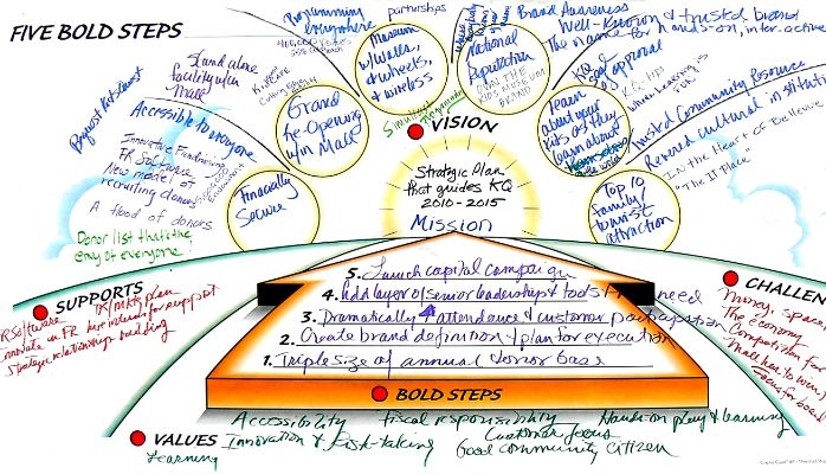 FIVE BOLD STEPS
Programming everywhere
partnerships
Brand Awareness
Well-Known & trusted brand
The name for hands-on, inter-active
Stand alone facility w/in Mall
Accessible to everyone
Innovative Fundraising
FR Software
New model of recruiting donors
A flood of donors
Donor list that's the envy of everyone
Financially Secure
Grand Re-Opening w/in Mall
Museum w/walls, & wheels, & wireless
National Reputation
OWN THE KIDS MUSEUM BRAND
KQ seal of approval
KQ-HB
Where Learning is FUN!
Learn about your kits as they learn about themselves & the world
Top 10 family/tourist attraction
Trusted Community Resource
Revered cultural instituti
IN the Heart of Bellevue
"The It Place"
VISION
Strategic Plan that guides KQ
2010-2015
Mission
SUPPORTS
FR Software
innovate in FR
strategic relationship building
CHALLEN
Money, space,
The economy
Competition for
5. Launch capital campaign
4. Add layer of senior leadership & tools need
3. Dramatically ↑ attendance & customer participation
2. Create brand definition & plan for execution
1. Triple size of annual donor base
BOLD STEPS
VALUES
Accessibility
fiscal responsibility
Hands-on play & learning
Innovation & Risk-taking
Customer focus
Learning
Good community citizen